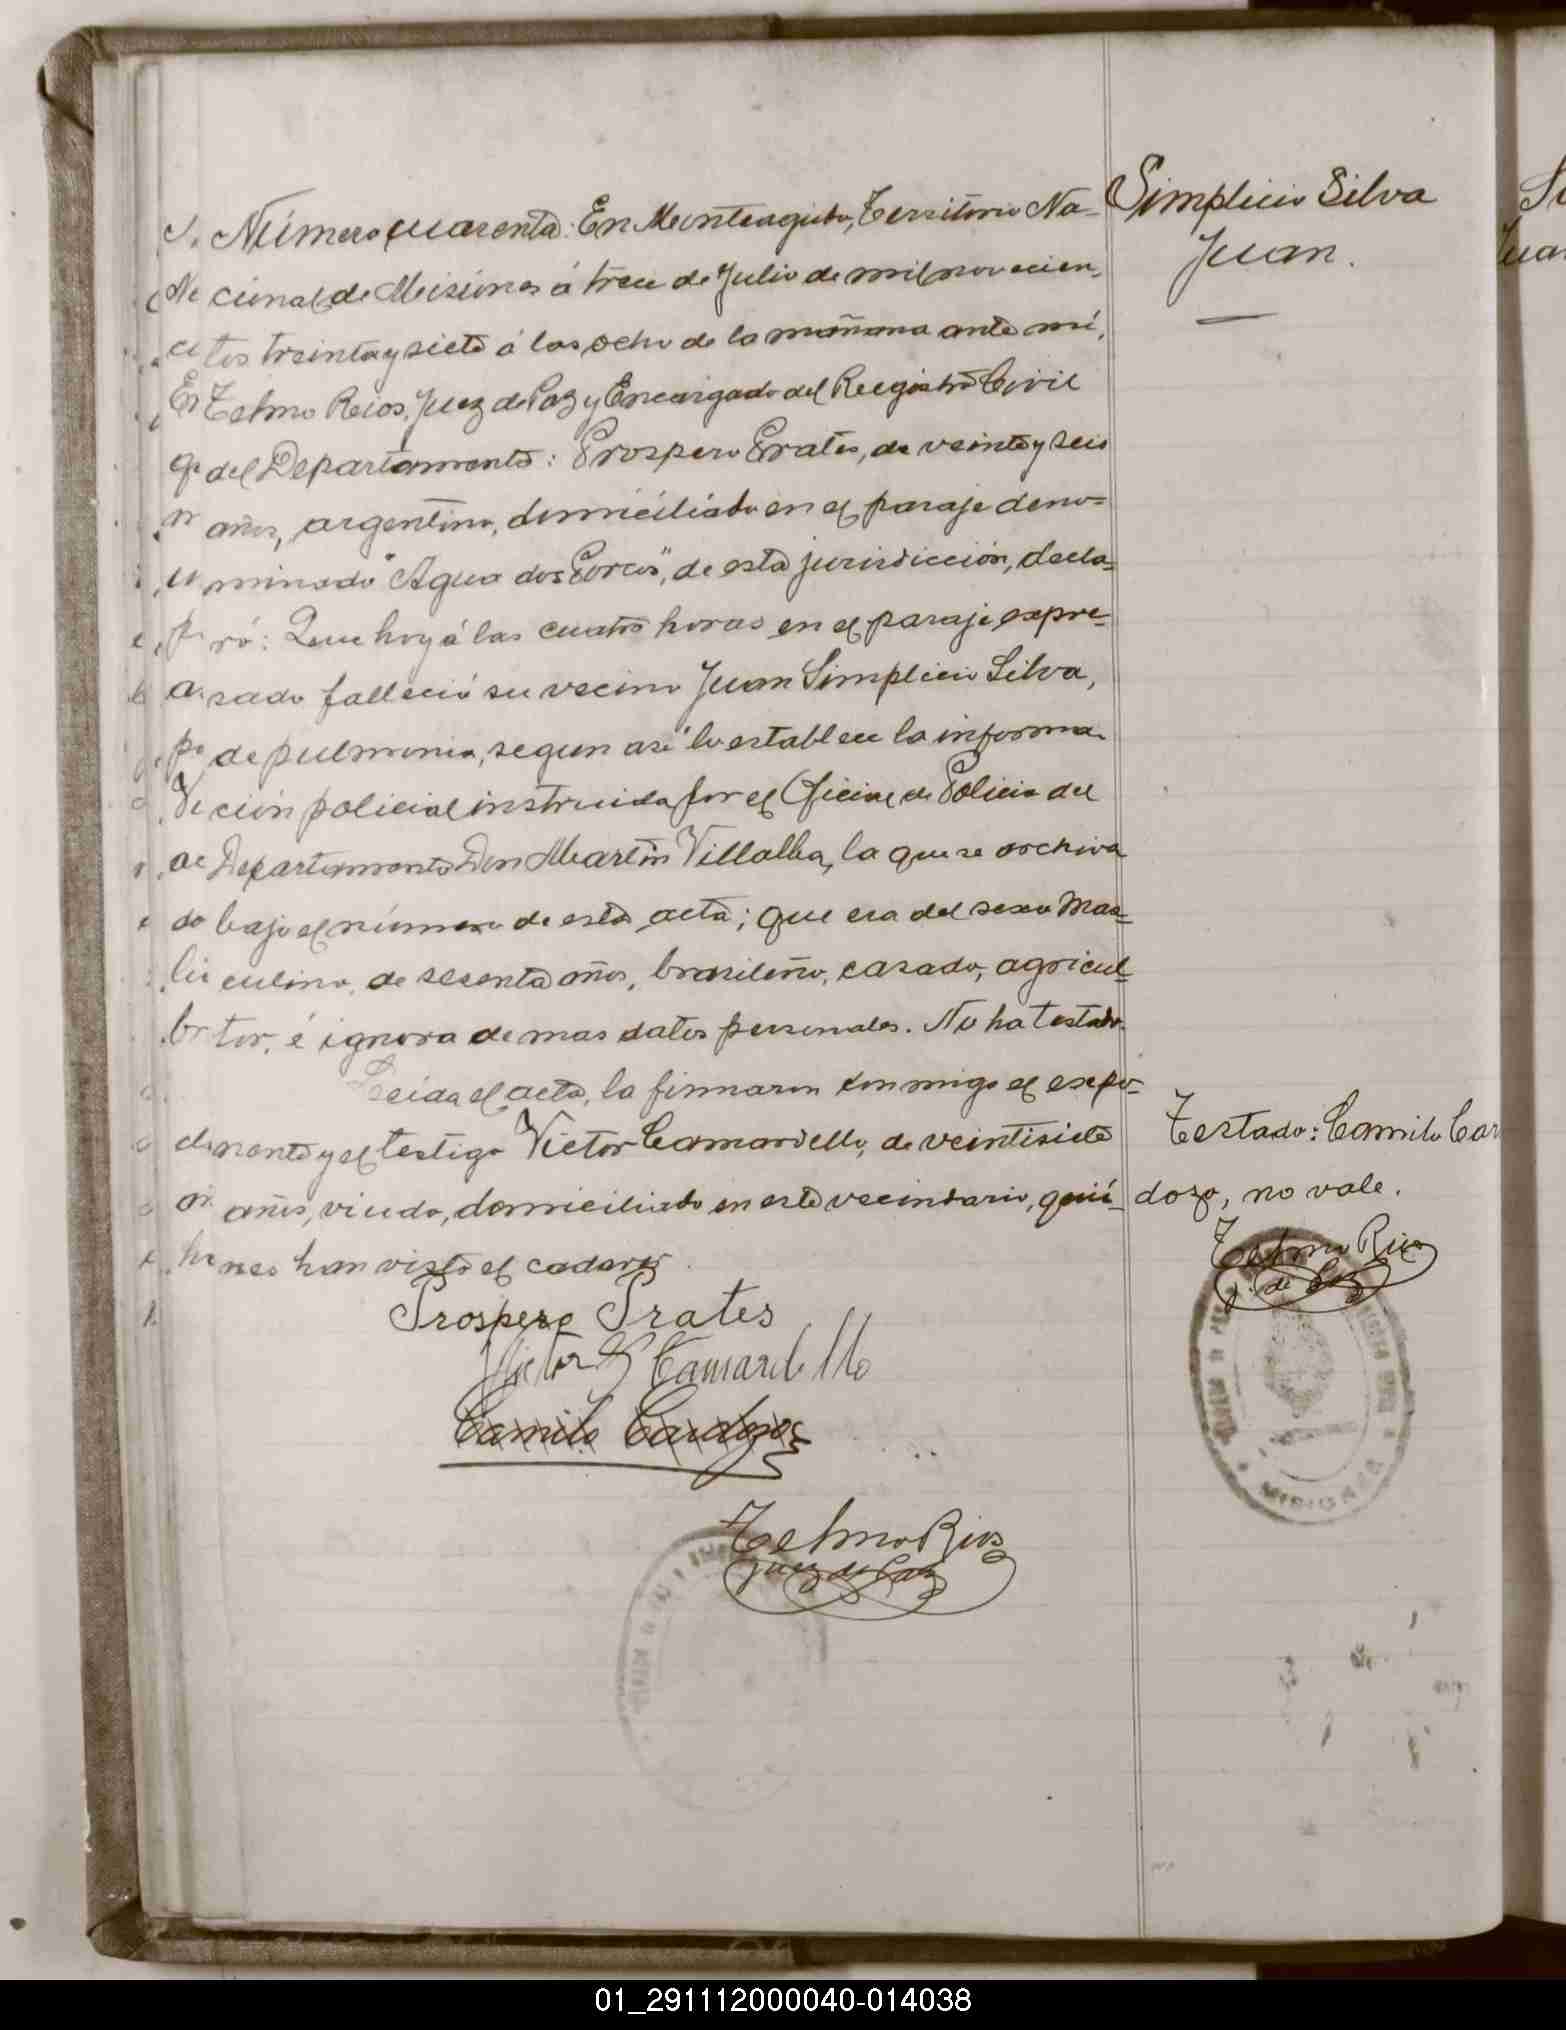 Número cuarenta: En Monteagudo, Territorio Na-
cional de Misiones á trece de Julio de mil novecien-
tos treinta y siete á las ocho de la mañana ante mí,
Telmo Rios, Juez de Paz y Encargado del Registro Civil
del Departamento: Prospero Prates, de veinte y seis
años, argentino, domiciliado en el paraje deno-
minado "Agua dos Porcos", de esta jurisdicción, decla-
ró: Que hoy á las cuatro horas en el paraje expre-
sado falleció su vecino Juan Simplicio Silva,
de pulmonia, segun asi lo establece la informa-
ción policial instruida por el Oficial de Policia del
Departamento Don Martin Villalba, la que se archiva
bajo el número de esta acta; que era del sexo mas-
culino, de sesenta años, brasileño, casado, agricul-
tor, é ignora de mas datos personales. No ha testado.
Leida el acta, la firmaron conmigo el expo-
nente y el testigo Victor Camardello, de veintisiete
años, viudo, domiciliado en este vecindario, quié-
nes han visto el cadaver.
Prospero Prates
Victor S Camardello
Camilo Cardozo
Telmo Rios
Juez de Paz
Simplicio Silva
Juan.
Testado: Camilo Car
dozo, no vale.
Telmo Rios
J. de Paz
MISIONES
01_291112000040-014038